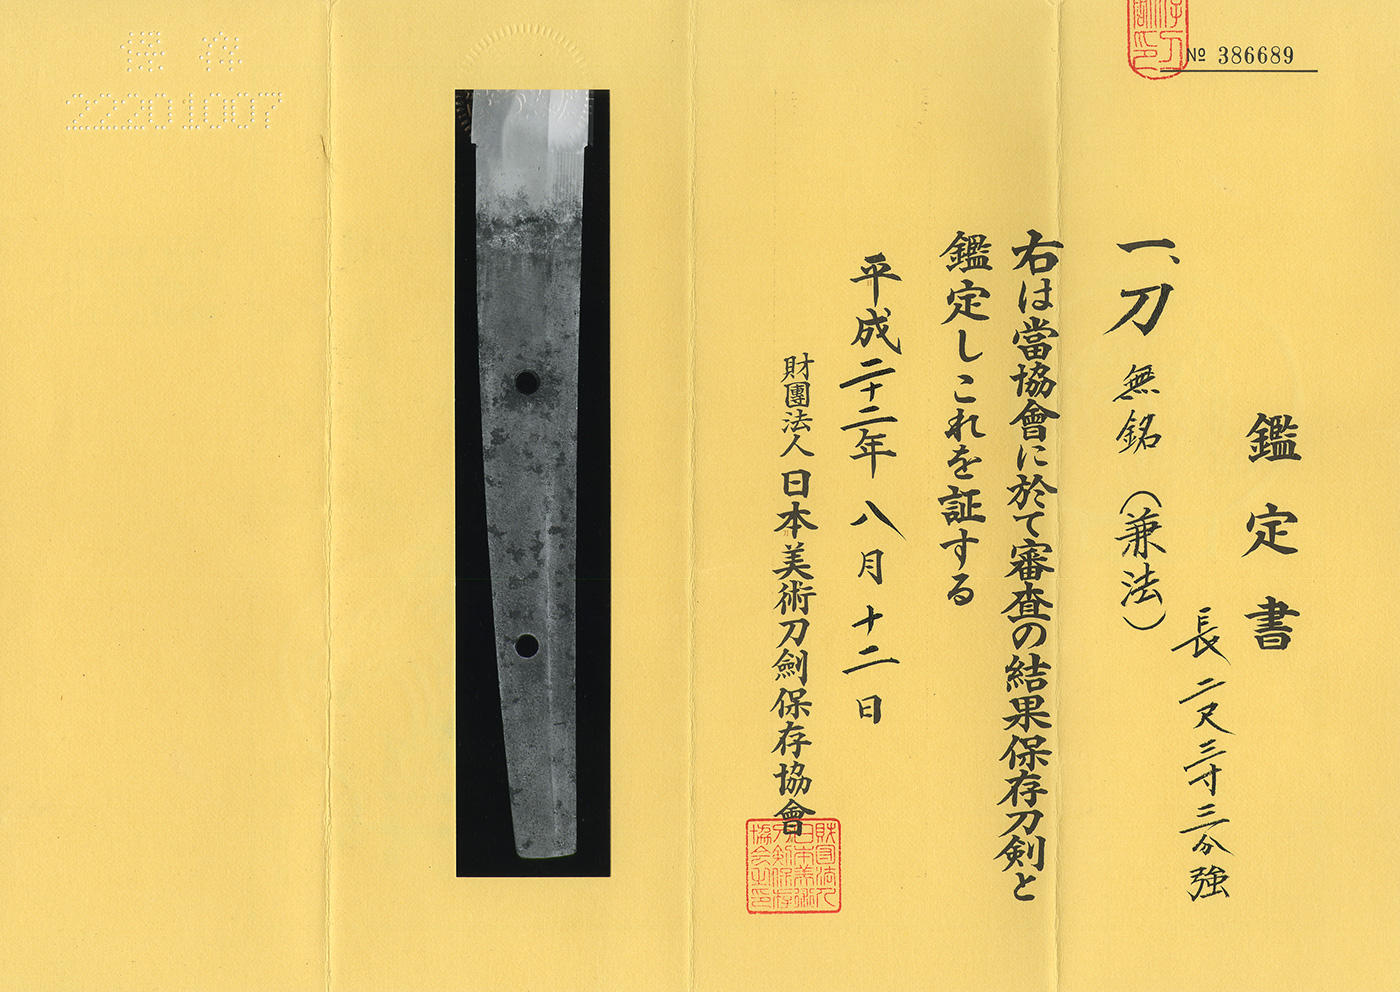 № 386689
鑑定書
一、刀 無銘（兼法）
長二尺三寸三分強
右は當協會に於て審査の結果保存刀剣と
鑑定しこれを証する
平成二十二年八月十二日
財團法人日本美術刀劍保存協會
財団法人日本美術刀剣保存協会之印
保存
22201007